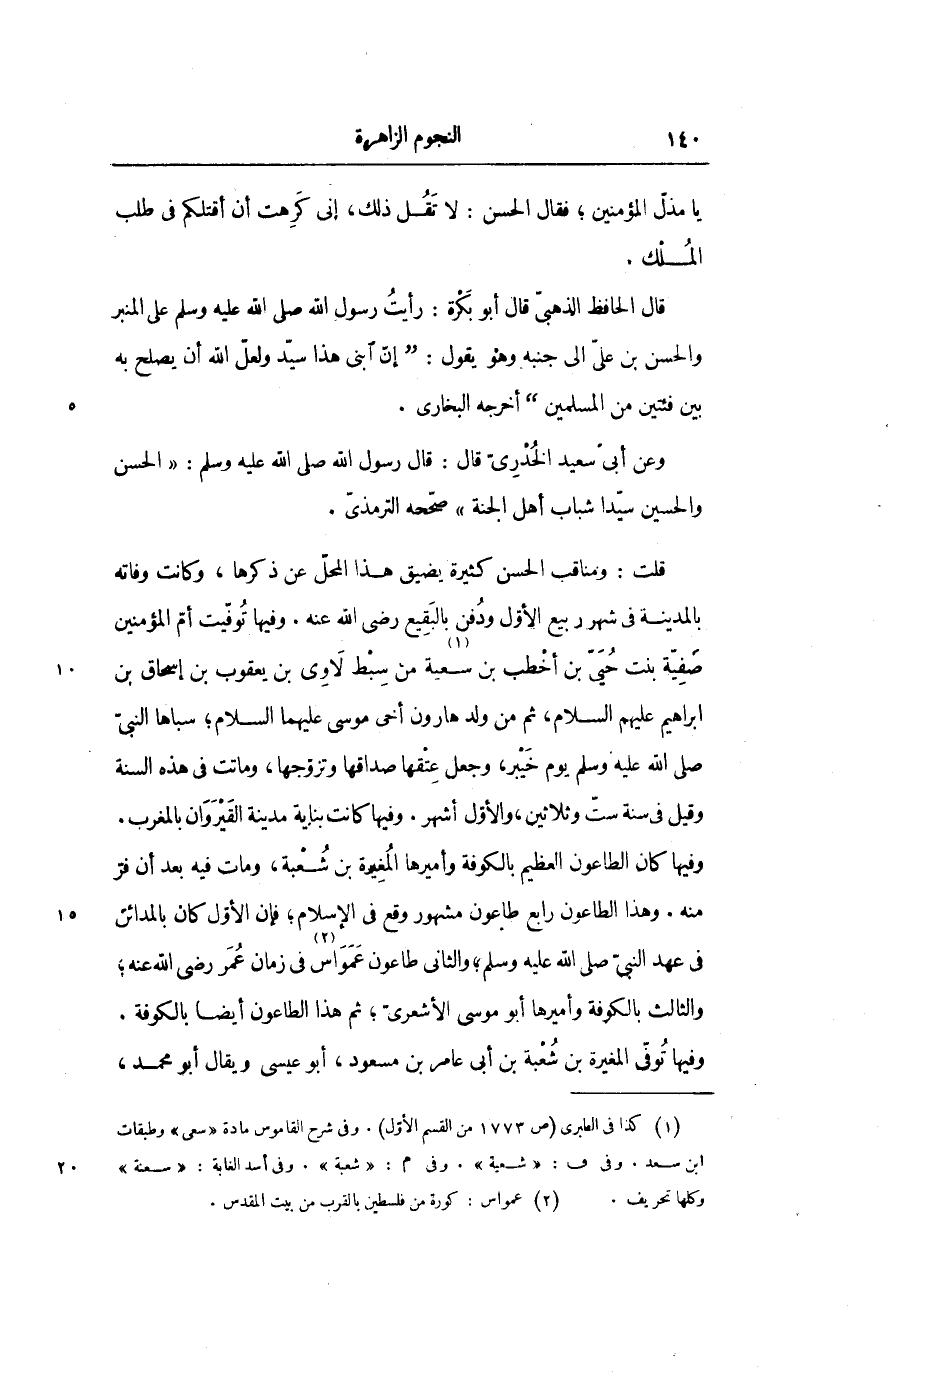 ١٤٠ النجوم الزاهرة
يا مذلّ المؤمنين ؛ فقال الحسن : لا تَقُل ذلك، إنى كَرِهت أن أقتلكم فى طلب
المُلْك .
قال الحافظ الذهبىّ قال أبو بَكْرة : رأيتُ رسول الله صلى الله عليه وسلم على المنبر
والحسن بن علىّ الى جنبه وهو يقول : ”إنّ ٱبنى هذا سيّد ولعلّ الله أن يصلح به
بين فئتين من المسلمين“ أخرجه البخارى . ٥
وعن أبى سعيد الخُدْرِىّ قال : قال رسول الله صلى الله عليه وسلم : «الحسن
والحسين سيّدا شباب أهل الجنة» صحّحه الترمذىّ .
قلت : ومناقب الحسن كثيرة يضيق هذا المحلّ عن ذكرها ، وكانت وفاته
بالمدينة فى شهر ربيع الأوّل ودُفن بالبَقِيع رضى الله عنه . وفيها تُوفّيت أمّ المؤمنين
صَفِيّة بنت حُيَىّ بن أَخْطب بن سعية (١) من سِبْط لَاوِى بن يعقوب بن إسحاق بن ١٠
ابراهيم عليهم السلام، ثم من ولد هارون أخى موسى عليهما السلام؛ سباها النبىّ
صلى الله عليه وسلم يوم خَيْبر، وجعل عِتْقها صداقها وتزوّجها، وماتت فى هذه السنة
وقيل فى سنة ستّ وثلاثين، والأوّل أشهر . وفيها كانت بناية مدينة القَيْرَوَان بالمغرب .
وفيها كان الطاعون العظيم بالكوفة وأميرها المُغِيرة بن شُعْبة، ومات فيه بعد أن فرّ
منه . وهذا الطاعون رابع طاعون مشهور وقع فى الإسلام؛ فإن الأوّل كان بالمدائن ١٥
فى عهد النبىّ صلى الله عليه وسلم؛ والثانى طاعون عَمَوَاس (٢) فى زمان عُمَر رضى الله عنه؛
والثالث بالكوفة وأميرها أبو موسى الأشعرىّ ؛ ثم هذا الطاعون أيضا بالكوفة .
وفيها تُوفّى المغيرة بن شُعْبة بن أبى عامر بن مسعود ، أبو عيسى ويقال أبو محمد ،
(١) كذا فى الطبرى (ص ١٧٧٣ من القسم الأوّل) . وفى شرح القاموس مادة «سعى» وطبقات
ابن سعد . وفى ف : «شعية» . وفى م : «شعبة» . وفى أسد الغابة : «سعنة» ٢٠
وكلها تحريف . (٢) عمواس : كورة من فلسطين بالقرب من بيت المقدس .